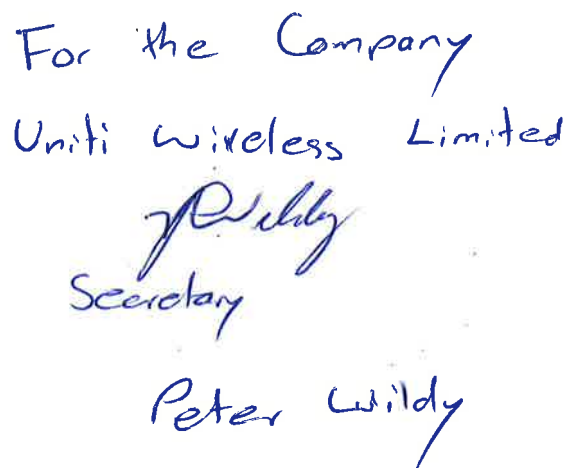 For the Company
Uniti Wireless Limited
PWildy
Secretary
Peter Wildy